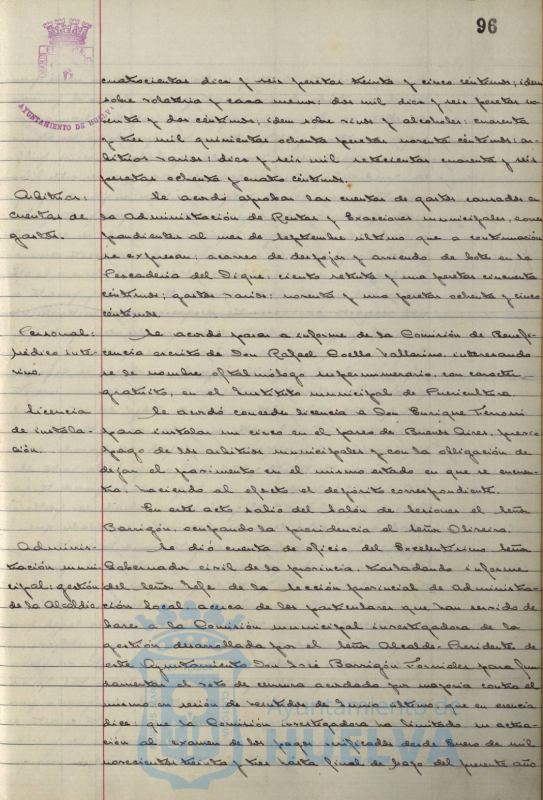 96
AYUNTAMIENTO DE HUELVA
cuatrocientas diez y seis pesetas treinta y cinco céntimos; idem
sobre volatería y caza menor: dos mil diez y seis pesetas no-
venta y dos céntimos; idem sobre vinos y alcoholes: cuarenta
y tres mil quinientas ochenta pesetas noventa céntimos; ar-
bitrios varios: diez y seis mil setecientas cuarenta y seis
pesetas ochenta y cuatro céntimos.
Arbitrios:
cuentas de
gastos.
Se acordó aprobar las cuentas de gastos causados en
la Administración de Rentas y Exacciones municipales, corres-
pondientes al mes de Septiembre último que a continuación
se expresan: acarreo de despojos y arriendo de bote en la
Pescadería del Dique: ciento setenta y una pesetas cincuenta
céntimos; gastos varios: noventa y una pesetas ochenta y cinco
céntimos.
Personal:
médico inte-
rino.
Se acordó pasar a informe de la Comisión de Benefi-
cencia escrito de Don Rafael Coello Vallarino, interesando
se le nombre oftalmólogo supernumerario, con carácter
gratuito, en el Instituto municipal de Puericultura.
Licencia
de instala-
ción.
Se acordó conceder licencia a Don Enrique
para instalar un circo en el paseo de Buenos Aires, previo
pago de los arbitrios municipales y con la obligación de
dejar el pavimento en el mismo estado en que se encuen-
tra, haciendo al efecto el depósito correspondiente.
En este acto salió del Salón de Sesiones el Señor
Barrigón, ocupando la presidencia el Señor Oliveira.
Adminis-
tración muni-
cipal: gestión
de la Alcaldía
Se dió cuenta de oficio del Excelentísimo Señor
Gobernador civil de la provincia, trasladando informe
del Señor Jefe de la Sección provincial de Administra-
ción local acerca de los particulares que han servido de
base a la Comisión municipal investigadora de la
gestión desarrollada por el Señor Alcalde-Presidente de
este Ayuntamiento Don José Barrigón Fornieles para fun-
damentar el voto de censura acordado por mayoría contra el
mismo en sesión de veintidos de Junio último, que en esencia
dice: que la Comisión investigadora ha limitado su actua-
ción al examen de los pagos verificados desde Enero de mil
novecientos treinta y tres hasta final de Mayo del presente año
Ayuntamiento de
HUELVA